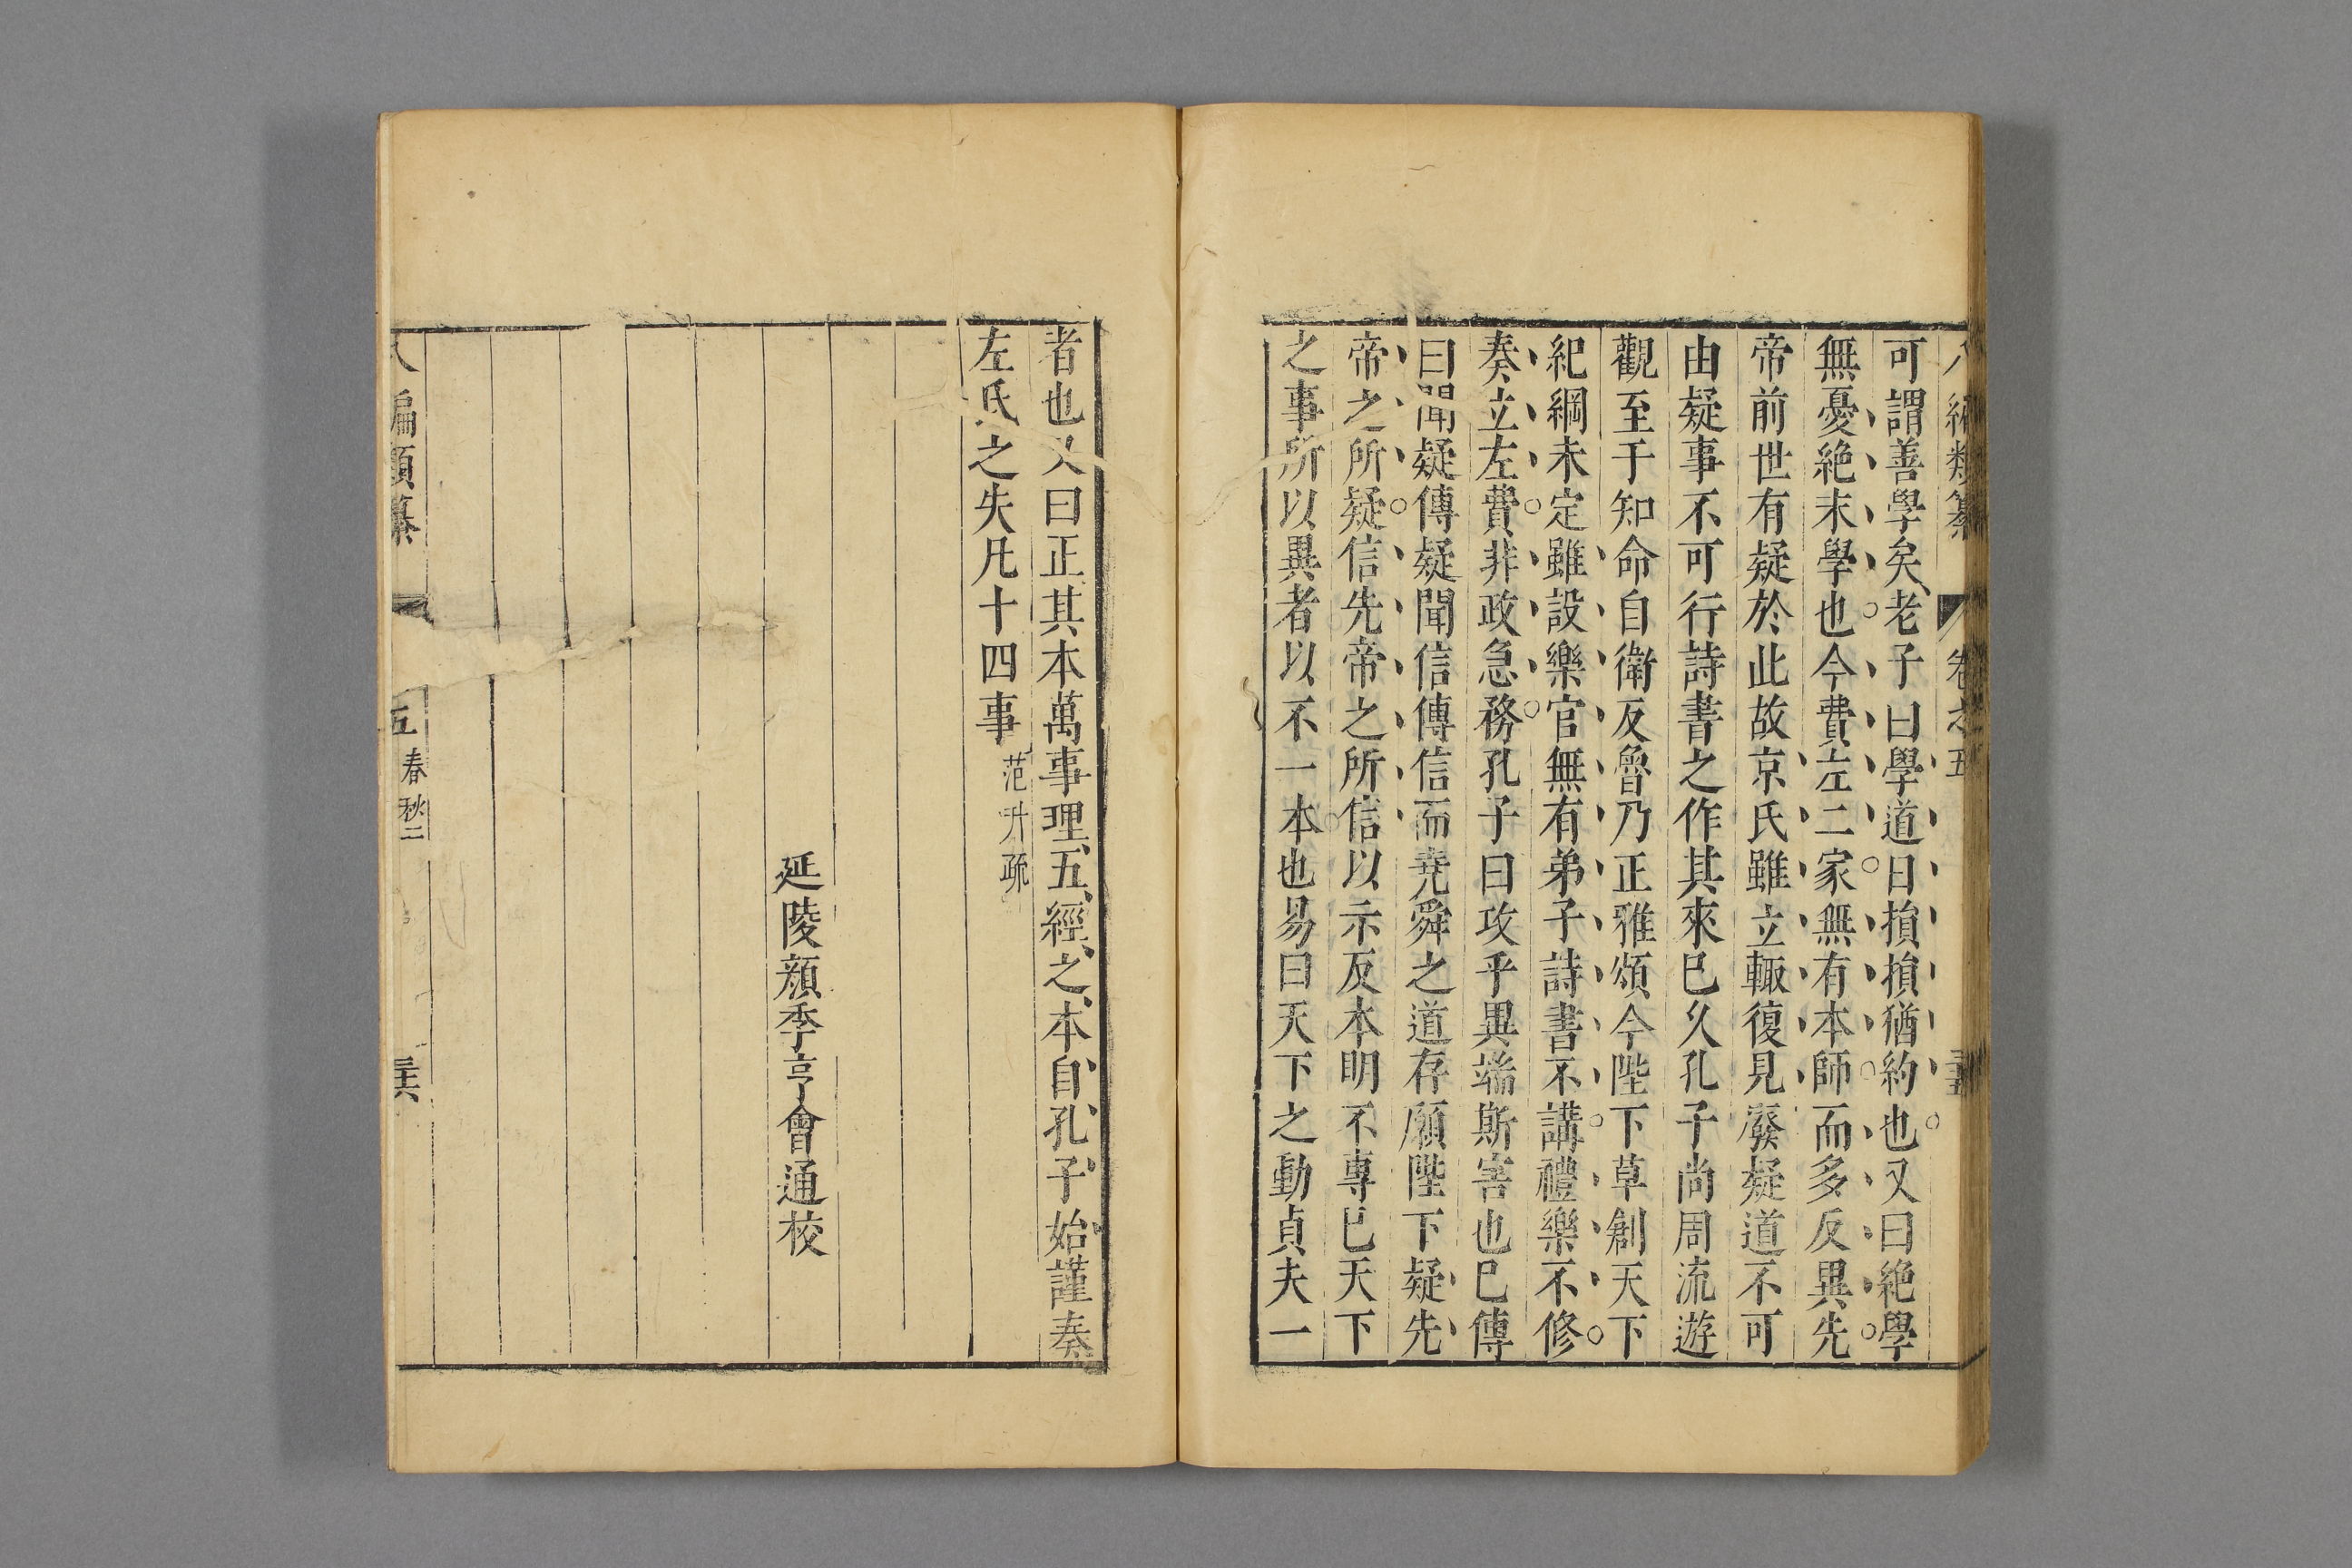 八編類纂 卷之五 三十五
可謂善學矣老子曰學道日損損猶約也又曰絶學
無憂絶末學也今費左二家無有本師而多反異先
帝前世有疑於此故京氏雖立輙復見廢疑道不可
由疑事不可行詩書之作其來巳久孔子尚周流遊
觀至于知命自衛反魯乃正雅頌今陛下草創天下
紀綱未定雖設樂官無有弟子詩書不講禮樂不修
奏立左費非政急務孔子曰攻乎異端斯害也巳傳
曰聞疑傳疑聞信傳信而堯舜之道存願陛下疑先
帝之所疑信先帝之所信以示反本明不專巳天下
之事所以異者以不一本也易曰天下之動貞夫一
者也又曰正其本萬事理五經之本自孔子始謹奏
左氏之失凡十四事 范升疏
延陵顔季亨會通校
八編類纂 五 春秋二 三十六